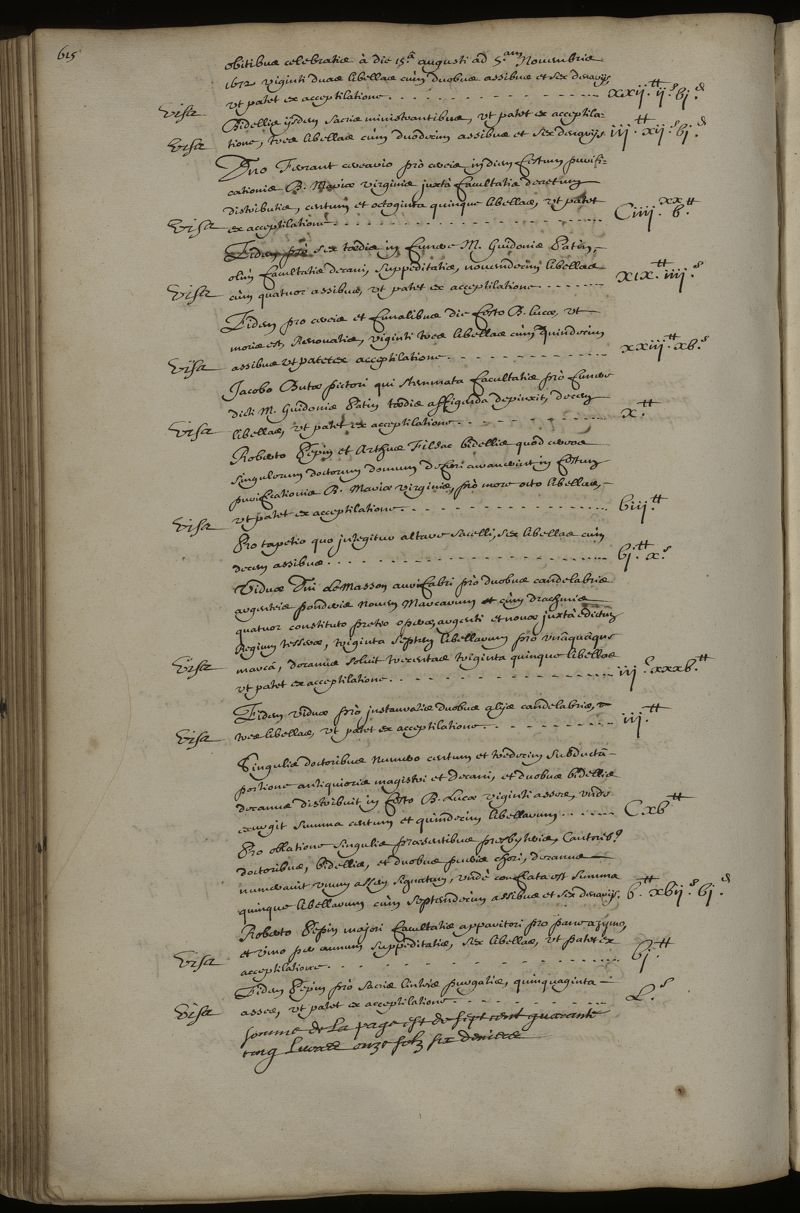 615
obitibus celebratis à die 15ª augusti ad 5.am Novembris
1672 viginti duas libellas cùm duobus assibus et sex denarijs,
Visa ut patet ex acceptilatione. xxij.tt ij.s bj.d
Bidellis ijsdem sacris ministrantibus, ut patet ex accepti-
Visa latione, tres libellas cùm duodecim assibus et sex denarijs iij.tt xij.s bj.d
Dno Ferrant cerario prò cereis in diem festum purifi-
cationis B. Mariæ virginis juxtà facultatis decretum
distributis, centum et octoginta quinque libellas, ut patet
Visa ex acceptilatione. Ciiij.xx b.tt
Eidem pro sex tædis in funere M. Guidonis Patin,
olim facultatis decani, suppeditatis, novemdecim libellas
Visa cùm quatuor assibus, ut patet ex acceptilatione. xix.tt iiij.s
Eidem pro cereis et funalibus die festo B. Lucæ, ut
moris est, Renovatis, viginti tres libellas cùm quindecim
Visa assibus ut patet ex acceptilatione. xxiij.tt xb.s
Jacobo Butæ pictori qui stemmata facultatis prò funere
dicti M. Guidonis Patin tædis affigenda depinxit, decem
Visa libellas, ut patet ex acceptilatione. x.tt
Roberto Pepin et Arthus Filsac bidellis quòd cereos
singulorum doctorum domum deferri curaverint in festum
purificationis B. Mariæ virginis, prò more octo libellas,
Visa ut patet ex acceptilatione. biij.tt
Pro tapetio quo integitur altare sacelli, sex libellas cùm
decem assibus. bj.tt x.s
Viduæ Dni Le Masson aurifabri prò duobus candelabris
argenteis ponderis novem Marcarum et cùm drachmis
quatuor constituto pretio operæ, argenti et novæ juxtà edictum
Regium tesseræ, triginta septem libellarum prò unâquâque
Visa marcâ, decanus solvit trecentas triginta quinque libellas
ut patet ex acceptilatione. iij.C xxxb.tt
Eidem viduæ prò instauratis duobus alijs candelabris,
Visa tres libellas, ut patet ex acceptilatione. iij.tt
Singulis doctoribus numero centum et tredecim subductâ
portione antiquioris magistri et decani, et duobus bidellis
decanus distribuit in festo B. Lucæ viginti asses, undè
exurgit summa centum et quindecim libellarum. Cxb.tt
Pro oblatione singulis præsentibus presbyteris, Cantorib9
doctoribus, bidellis, et duobus pueris chori, decanus
numeravit unum assem signatum, undè conflata est summa
quinque libellarum cùm septemdecim assibus et sex denarijs. b.tt xbij.s bj.d
Roberto Pepin majori facultatis apparitori pro pane azymo,
et vino per annum suppeditatis, sex libellas, ut patet ex
Visa acceptilatione. bj.tt
Eidem Pepin prò sacris linteis purgatis, quinquaginta
Visa asses, ut patet ex acceptilatione. L.s
Somme de La page est de sept cent quarante
cinq Livres onze solz six deniers